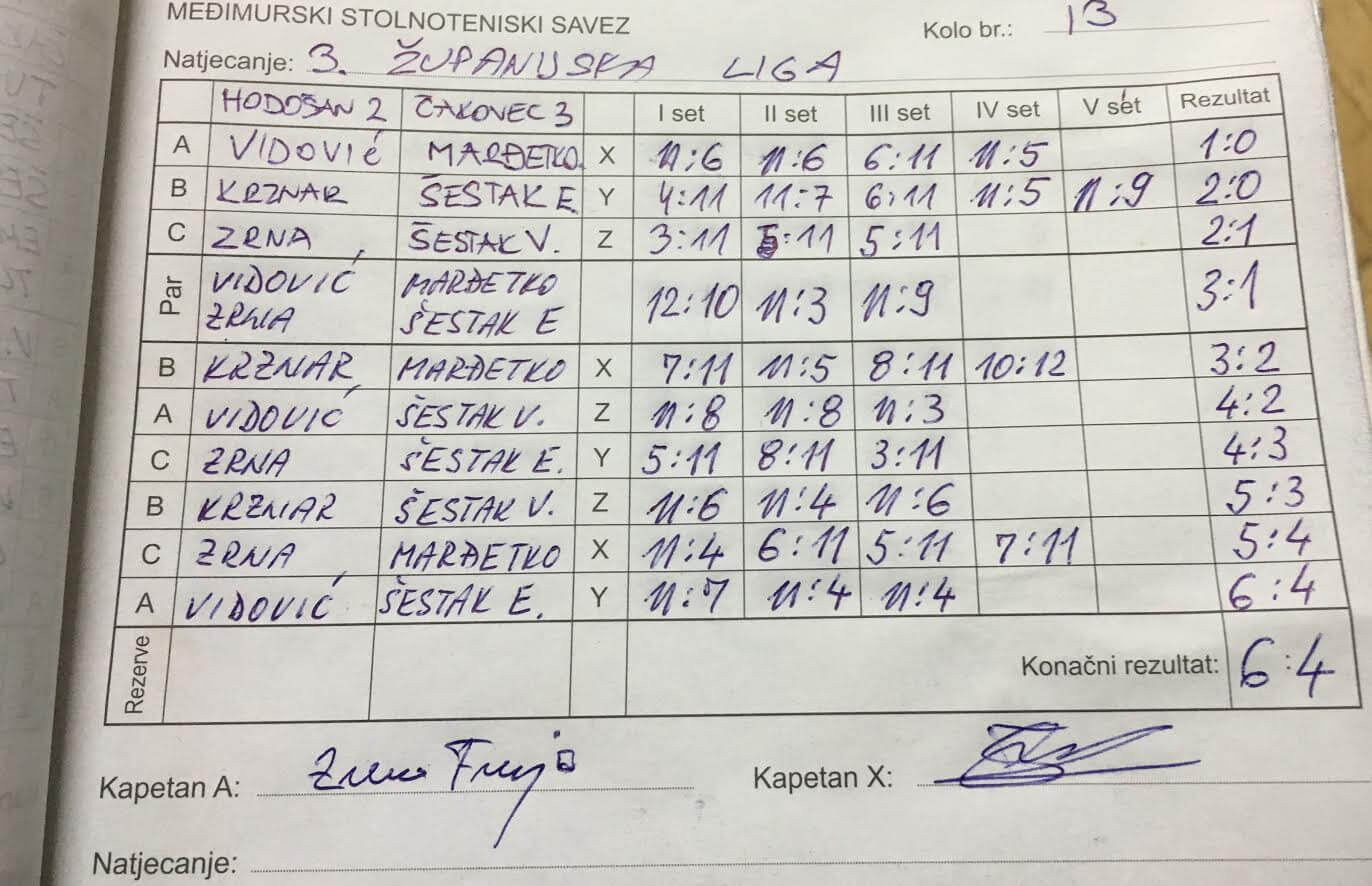 MEĐIMURSKI STOLNOTENISKI SAVEZ
Kolo br.: 13
Natjecanje: 3. ŽUPANIJSKA LIGA
HODOŠAN 2 ČAKOVEC 3 I set II set III set IV set V set Rezultat
A VIDOVIĆ MARĐETKO X 11:6 11:6 6:11 11:5 1:0
B KRZNAR ŠESTAK E Y 4:11 11:7 6:11 11:5 11:9 2:0
C ZRNA ŠESTAK V. Z 3:11 5:11 5:11 2:1
Par VIDOVIĆ MARĐETKO 12:10 11:3 11:9 3:1
ZRNA ŠESTAK E
B KRZNAR MARĐETKO X 7:11 11:5 8:11 10:12 3:2
A VIDOVIĆ ŠESTAK V. Z 11:8 11:8 11:3 4:2
C ZRNA ŠESTAK E. Y 5:11 8:11 3:11 4:3
B KRZNAR ŠESTAK V. Z 11:6 11:4 11:6 5:3
C ZRNA MARĐETKO X 11:4 6:11 5:11 7:11 5:4
A VIDOVIĆ ŠESTAK E. Y 11:7 11:4 11:4 6:4
Rezerve Konačni rezultat: 6:4
Kapetan A: Kapetan X:
Natjecanje: